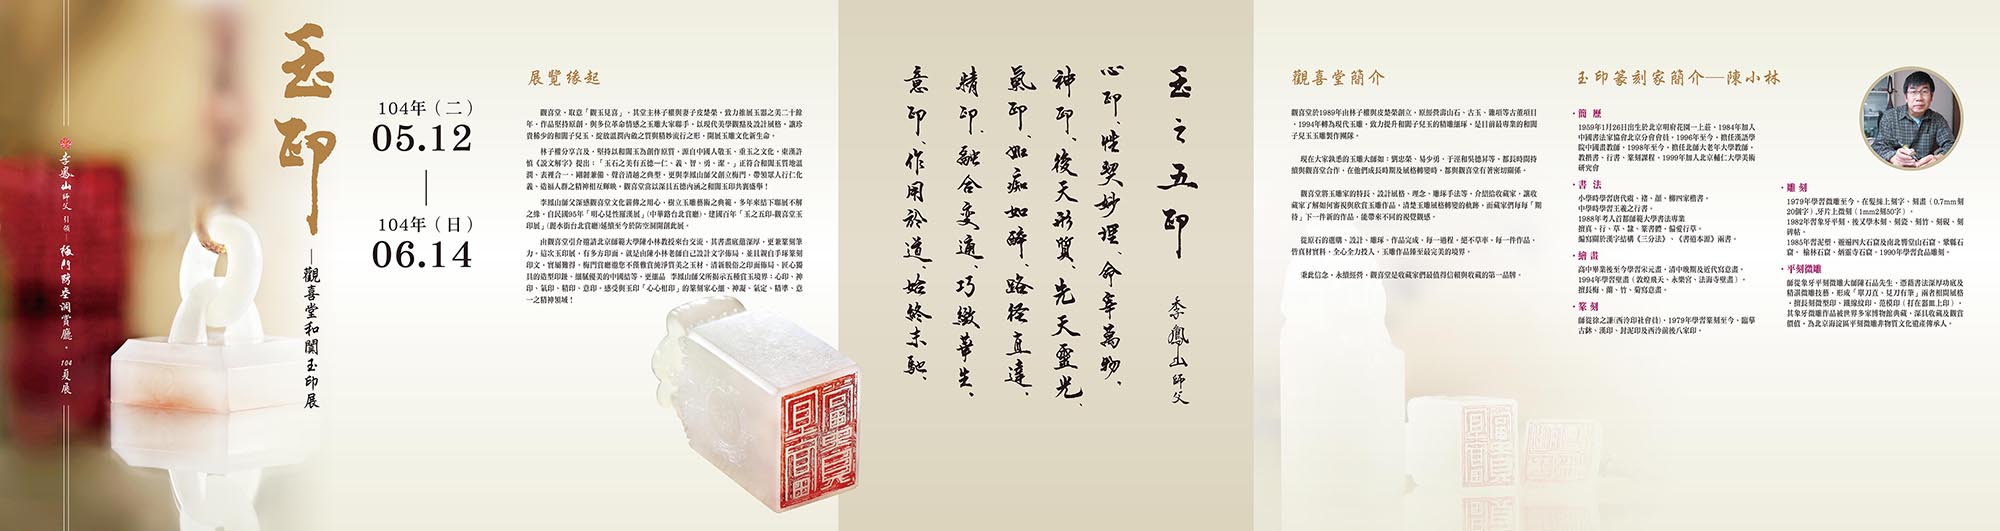 李鳳山師父 引領—梅門防空洞賞廳。104夏展
玉印
—觀喜堂和闐玉印展
104年（二）
05.12
104年（日）
06.14
展覽緣起
觀喜堂，取意「觀玉見喜」，其堂主林子權與妻子皮楚榮，致力推展玉器之美二十餘
年，作品堅持原創，與多位革命情感之玉雕大家聯手，以現代美學觀點及設計風格，讓珍
貴稀少的和闐子兒玉，綻放溫潤內斂之質與精妙流行之形，開展玉雕文化新生命。
林子權分享言及，堅持以和闐玉為創作原質，源自中國人敬玉、重玉之文化，東漢許
慎《說文解字》提出：「玉石之美有五德—仁、義、智、勇、潔。」正符合和闐玉質地溫
潤、表裡合一、剛韌兼備、聲音清越之典型，更與李鳳山師父創立梅門，帶領眾人行仁化
義、造福人群之精神相互輝映，觀喜堂當以深具五德內涵之和闐玉印共襄盛舉！
李鳳山師父深感觀喜堂文化薪傳之用心，樹立玉雕藝術之典範，多年來結下聯展不解
之緣，自民國95年「明心見性羅漢展」(中華路台北賞廳)、建國百年「玉之五印-觀喜堂玉
印展」(麗水街台北賞廳)延續至今於防空洞開創此展。
由觀喜堂引介邀請北京師範大學陳小林教授來台交流，其書畫底蘊深厚，更兼篆刻筆
力，這次玉印展，有多方印面，就是由陳小林老師自己設計文字佈局，並且親自手琢篆刻
印文，實屬難得，梅門賞廳邀您不僅雅賞純淨質美之玉材，清新脫俗之印面佈局、匠心獨
具的造型印鈕、細膩優美的中國結等，更細品 李鳳山師父所揭示五種賞玉境界：心印、神
印、氣印、精印、意印，感受與玉印「心心相印」的篆刻家心細、神凝、氣定、精準、意
一之精神領域！
玉之五印
季鳳山師父
心印、性契妙理、命宰萬物、
神印、後天形質、先天靈光、
氣印、如痴如醉、路徑直達、
精印、融合變通、巧緻華生、
意印、作用於道、始終未馳、
觀喜堂簡介
觀喜堂於1989年由林子權與皮楚榮創立，原經營壽山石、古玉、雜項等古董項目
，1994年轉為現代玉雕，致力提升和闐子兒玉的精雕細琢，是目前最專業的和闐
子兒玉玉雕製作團隊。
現在大家熟悉的玉雕大師如：劉忠榮、易少勇、于涇和吳德昇等，都長時間持
續與觀喜堂合作，在他們成長時期及風格轉變時，都與觀喜堂有著密切關係。
觀喜堂將玉雕家的特長、設計風格、理念、雕琢手法等，介紹給收藏家，讓收
藏家了解如何審視與欣賞玉雕作品，清楚玉雕風格轉變的軌跡，而藏家們每每「期
待」下一件新的作品，能帶來不同的視覺觀感。
從原石的選購、設計、雕琢、作品完成，每一過程，絕不草率，每一件作品，
皆真材實料，全心全力投入，玉雕作品臻至最完美的境界。
秉此信念，永續經營，觀喜堂是收藏家們最值得信賴與收藏的第一品牌。
玉印篆刻家簡介—陳小林
·簡 歷
1959年1月26日出生於北京明府花園一上莊，1984年加入
中國書法家協會北京分會會員，1996年至今，擔任漢語學
院中國畫教師，1998年至今，擔任北師大老年大學教師，
教楷書、行書、篆刻課程，1999年加入北京輔仁大學美術
研究會
·書 法
小學時學習唐代虞、褚、顏、柳四家楷書。
中學時學習王羲之行書。
1988年考入首都師範大學書法專業
擅真、行、草、隸、篆書體，偏愛行草。
編寫關於漢字結構《三分法》、《書道本源》兩書。
·繪 畫
高中畢業後至今學習宋元畫、清中晚期及近代寫意畫。
1994年學習壁畫（敦煌飛天、永樂宮、法海寺壁畫）。
擅長梅、蘭、竹、菊寫意畫。
·篆 刻
師從徐之謙(西泠印社會員)，1979年學習篆刻至今，臨摹
古鉥、漢印、封泥印及西泠前後八家印。
·雕 刻
1979年學習微雕至今，在髮絲上刻字、刻畫（0.7mm刻
20個字）,牙片上微刻（1mm2刻50字）。
1982年習象牙平刻、後又學木刻、瓷刻、刻竹、刻硯、刻
碑帖。
1985年習泥塑，遊遍四大石窟及南北響堂山石窟、鞏縣石
窟、 榆林石窟、炳靈寺石窟。1990年學習食品雕刻。
·平刻微雕
師從象牙平刻微雕大師陳石晶先生，憑藉書法深厚功底及
精湛微雕技藝，形成「單刀直、見刀有筆」兩者相間風格
，擅長刻微型印、鐵線紋印、范模印（打在器皿上印）。
其象牙微雕作品被世界多家博物館典藏，深具收藏及觀賞
價值，為北京海淀區平刻微雕非物質文化遺產傳承人。